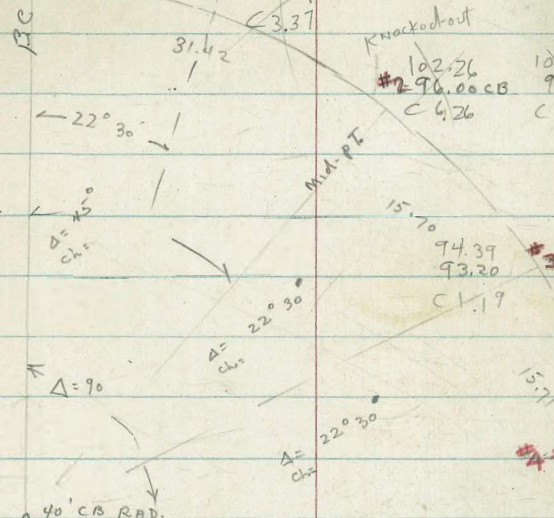 BC
C 3.37
31.42
Knocked out
102.26
#2 96.00 CB
C 6.26
C
22° 30'
Mid-pt
15.70
Δ= 45°
ch=
94.39
93.20
C 1.19
Δ= 22° 30
ch=
Δ=90
Δ= 22° 30
ch=
40' CB RAD.